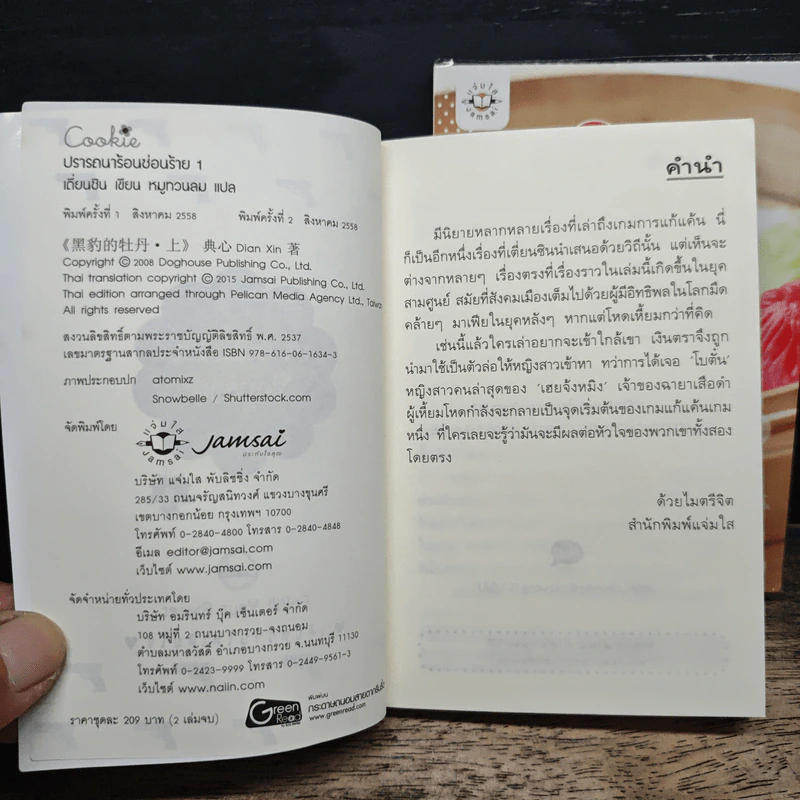 Cookie
ปรารถนาร้อนซ่อนร้าย 1
เตี่ยนซิน เขียน หมูกวนลม แปล
พิมพ์ครั้งที่ 1 สิงหาคม 2558 พิมพ์ครั้งที่ 2 สิงหาคม 2558
《黑豹的牡丹・上》 典心 Dian Xin 著
Copyright © 2008 Doghouse Publishing Co., Ltd.
Thai translation copyright © 2015 Jamsai Publishing Co., Ltd.
Thai edition arranged through Pelican Media Agency Ltd., Taiwan
All rights reserved
สงวนลิขสิทธิ์ตามพระราชบัญญัติลิขสิทธิ์ พ.ศ. 2537
เลขมาตรฐานสากลประจำหนังสือ ISBN 978-616-06-1634-3
ภาพประกอบปก atomixz
Snowbelle / Shutterstock.com
จัดพิมพ์โดย
แจ่มใส
Jamsai
Jamsai
ประทับใจคุณ
บริษัท แจ่มใส พับลิชชิ่ง จำกัด
285/33 ถนนจรัญสนิทวงศ์ แขวงบางขุนศรี
เขตบางกอกน้อย กรุงเทพฯ 10700
โทรศัพท์ 0-2840-4800 โทรสาร 0-2840-4848
อีเมล editor@jamsai.com
เว็บไซต์ www.jamsai.com
จัดจำหน่ายทั่วประเทศโดย
บริษัท อมรินทร์ บุ๊ค เซ็นเตอร์ จำกัด
108 หมู่ที่ 2 ถนนบางกรวย-จงถนอม
ตำบลมหาสวัสดิ์ อำเภอบางกรวย จ.นนทบุรี 11130
โทรศัพท์ 0-2423-9999 โทรสาร 0-2449-9561-3
เว็บไซต์ www.naiin.com
ราคาชุดละ 209 บาท (2 เล่มจบ)
Green
Read
พิมพ์บน
กระดาษถนอมสายตากรีนรี้ด
www.greenread.com
คำนำ
มีนิยายหลากหลายเรื่องที่เล่าถึงเกมการแก้แค้น นี่
ก็เป็นอีกหนึ่งเรื่องที่เตี่ยนซินนำเสนอด้วยวิถีนั้น แต่เห็นจะ
ต่างจากหลายๆ เรื่องตรงที่เรื่องราวในเล่มนี้เกิดขึ้นในยุค
สามศูนย์ สมัยที่สังคมเมืองเต็มไปด้วยผู้มีอิทธิพลในโลกมืด
คล้ายๆ มาเฟียในยุคหลังๆ หากแต่โหดเหี้ยมกว่าที่คิด
เช่นนี้แล้วใครเล่าอยากจะเข้าใกล้เขา เงินตราจึงถูก
นำมาใช้เป็นตัวล่อให้หญิงสาวเข้าหา ทว่าการได้เจอ ‘โบตั๋น’
หญิงสาวคนล่าสุดของ ‘เฮยจิ้งหมิง’ เจ้าของฉายาเสือดำ
ผู้เหี้ยมโหดกำลังจะกลายเป็นจุดเริ่มต้นของเกมแก้แค้นเกม
หนึ่ง ที่ใครเลยจะรู้ว่ามันจะมีผลต่อหัวใจของพวกเขาทั้งสอง
โดยตรง
ด้วยไมตรีจิต
สำนักพิมพ์แจ่มใส
แจ่มใส
Jamsai